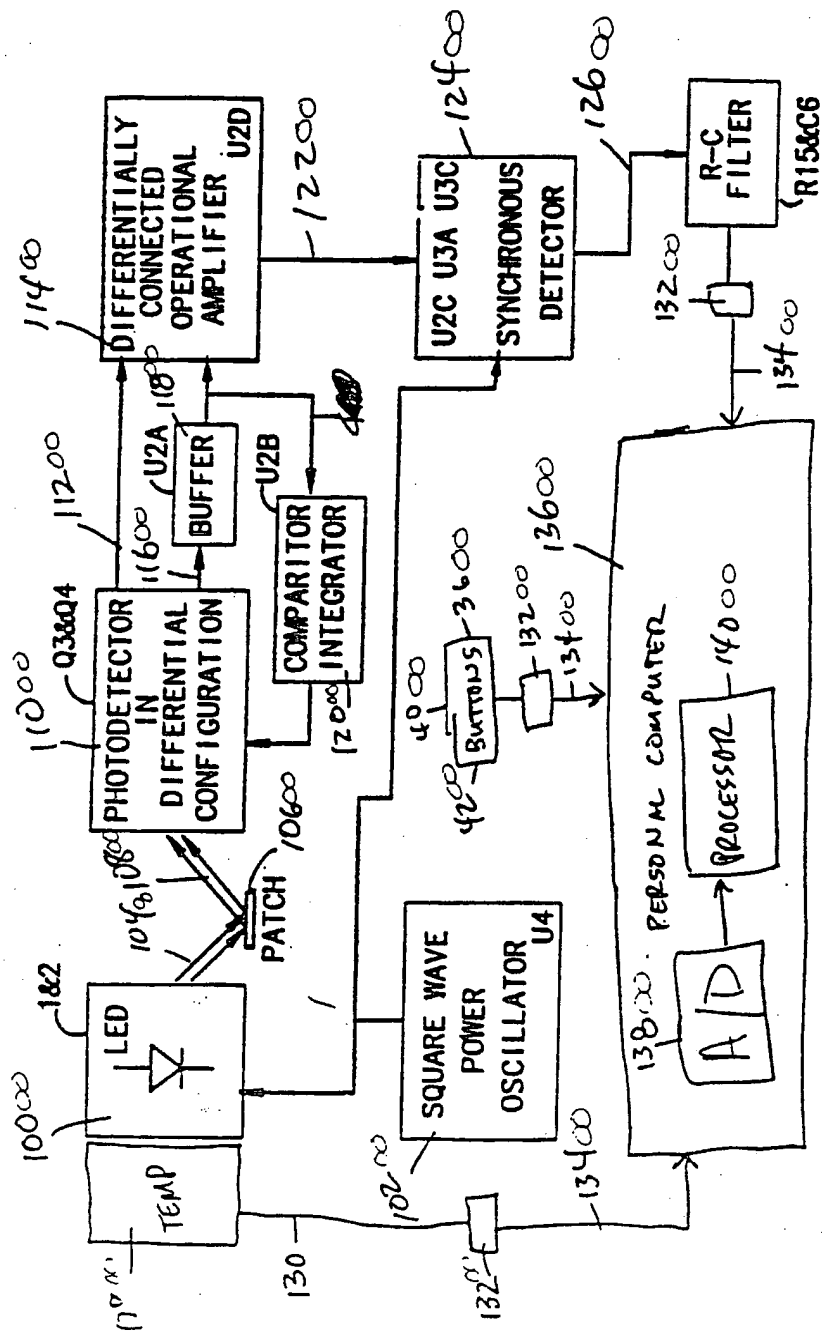 17
TEMP
130
132
13400
10000
LED
1&2
10200
SQUARE WAVE
POWER
OSCILLATOR
U4
104&10800
PATCH
10600
11000
Q3&Q4
PHOTODETECTOR
IN
DIFFERENTIAL
CONFIGURATION
11200
11600
U2A
BUFFER
11800
U2B
COMPARITOR
INTEGRATOR
12000
11400
DIFFERENTIALLY
CONNECTED
OPERATIONAL
AMPLIFIER
U2D
12200
U2C U3A U3C
SYNCHRONOUS
DETECTOR
12400
12600
R-C
FILTER
R15&C6
13200
13400
4000
4200
BUTTONS
3600
13200
13400
13600
PERSONAL COMPUTER
13800
A/D
PROCESSOR
14000